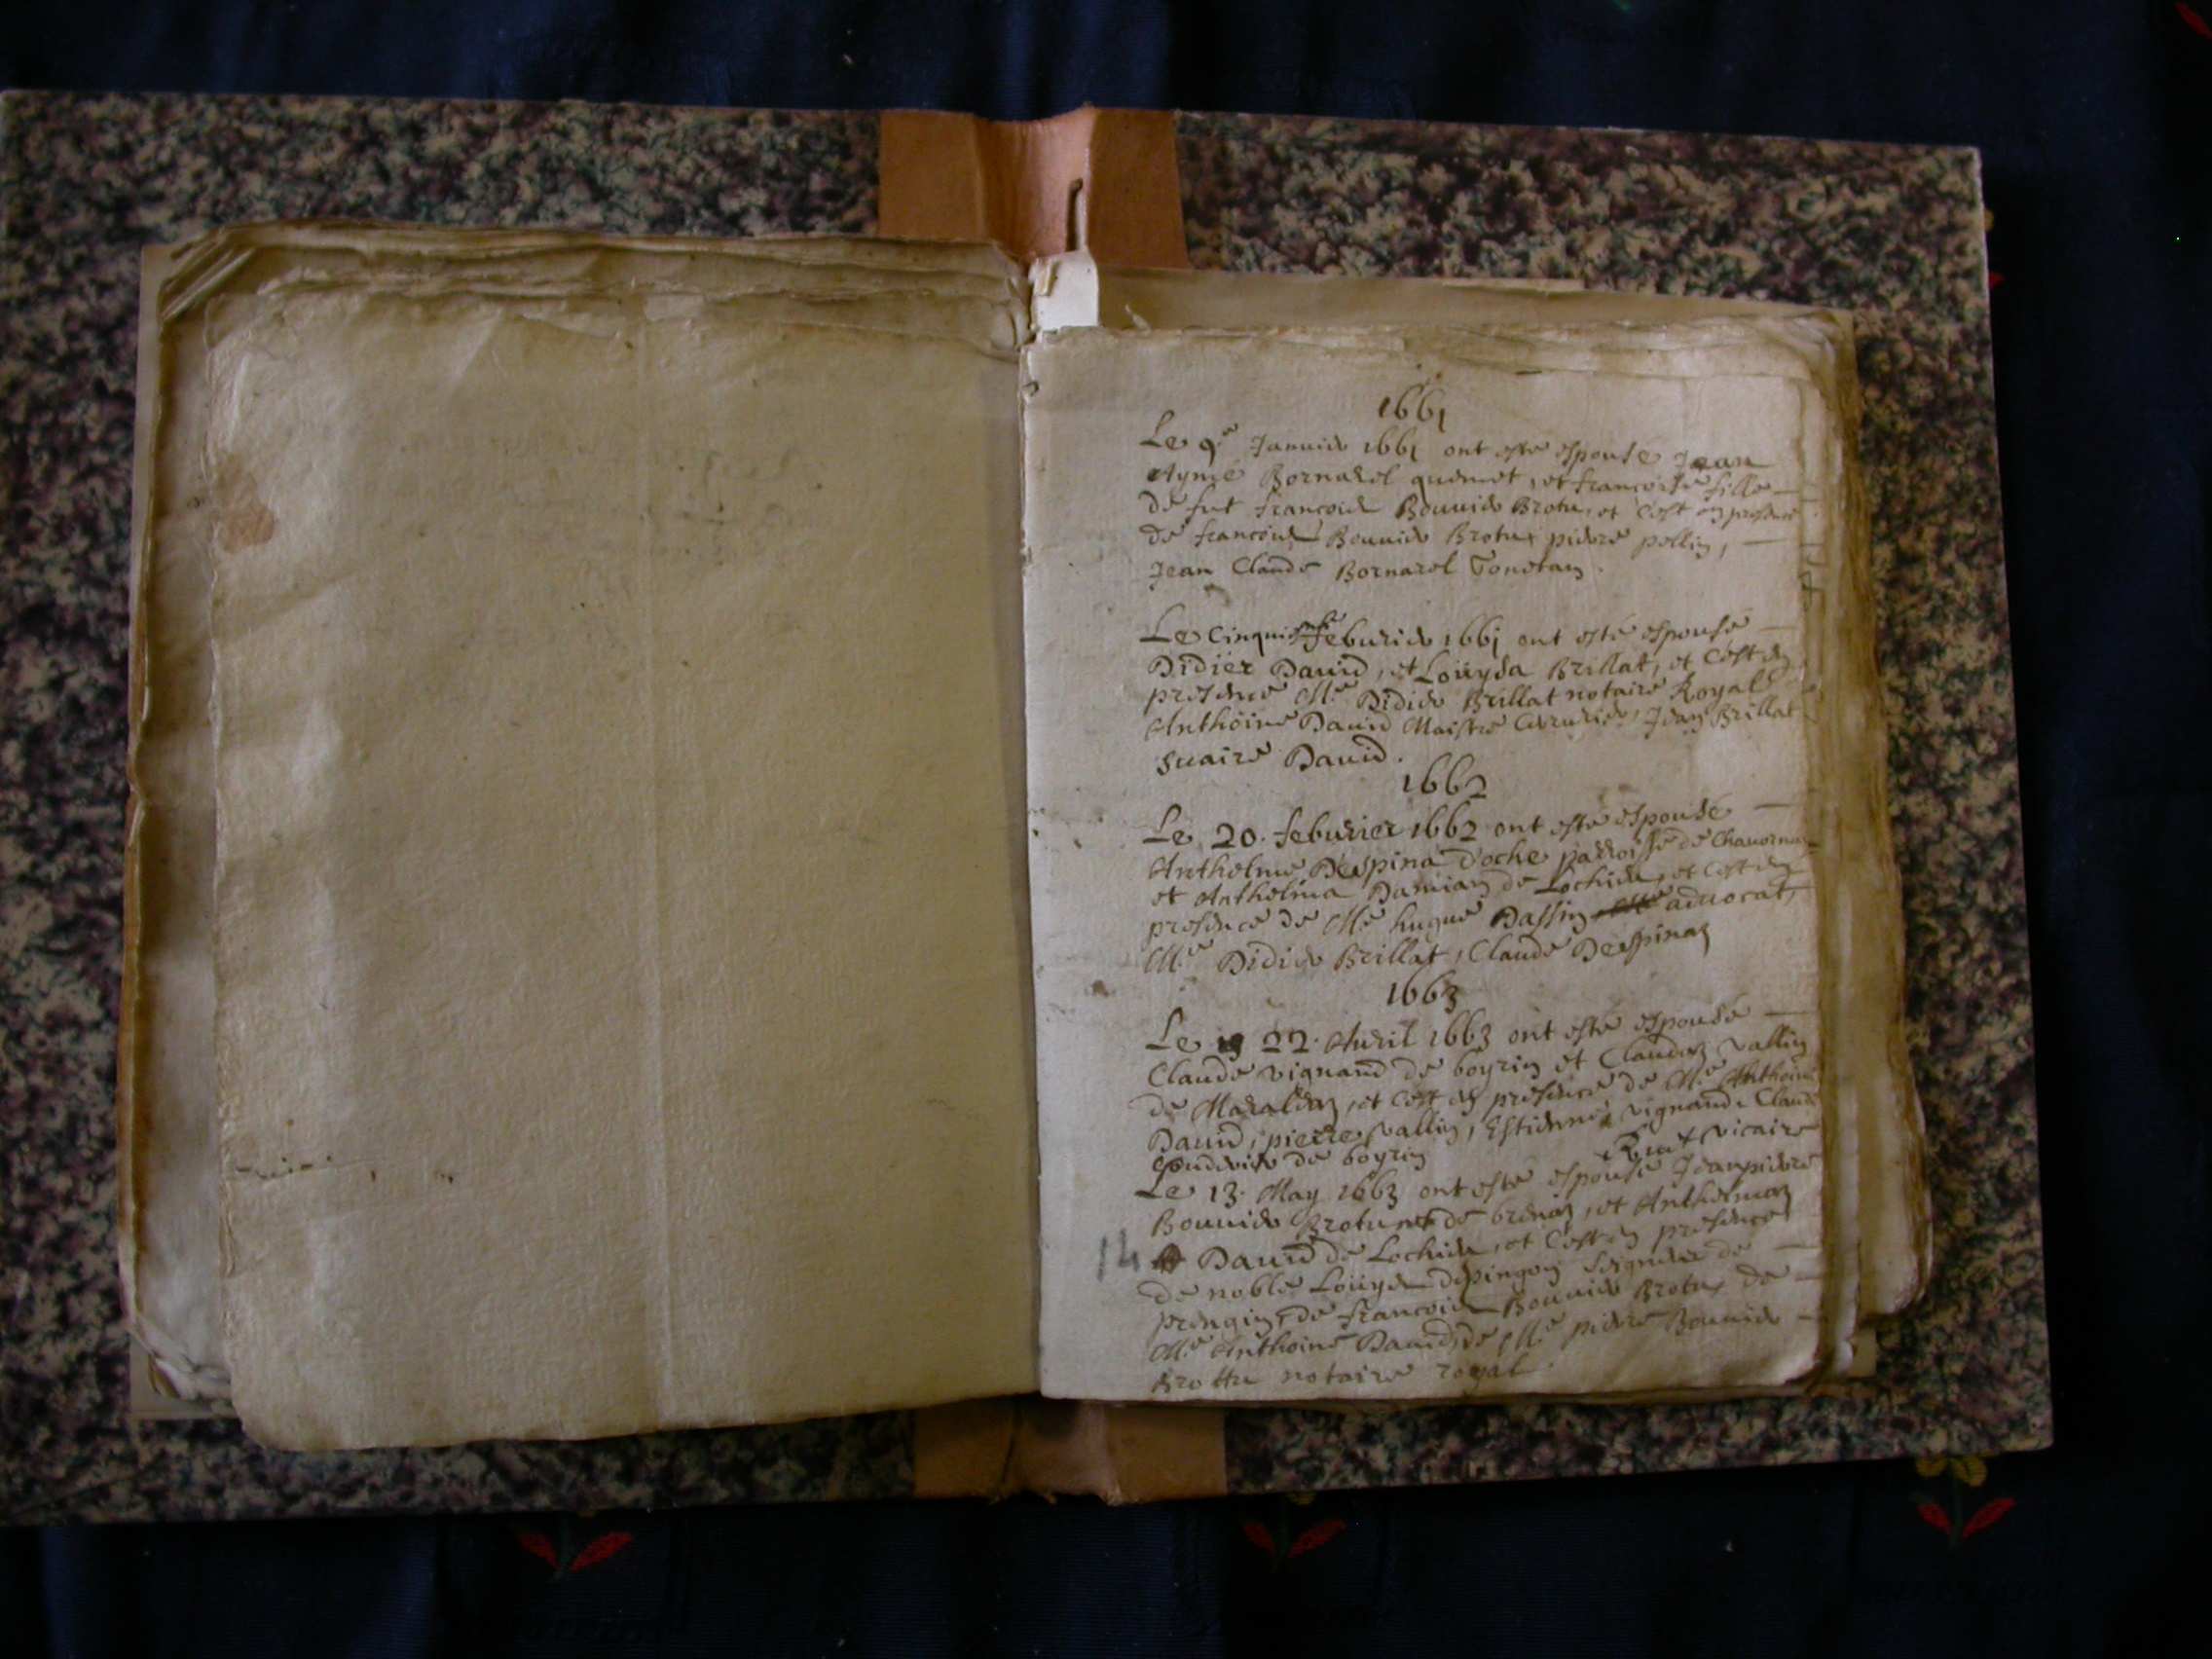 1661
Le 9e Januier 1661 ont esté espousé Jean
Aymé Bornarel quemet, et francoise fille
de fut francois Bouuier Brotu, et c'est en presence
de francois Bouuier Brotu, pierre pellin,
Jean Claude Bornarel Tonetan.
Le Cinquiesme feburier 1661 ont esté espousé
Didier Dauid, et Loüysa Brillat, et c'est en
presence Me Didier Brillat notaire Royal
Anthoine Dauid Maistre Jean Brillat
suaire Dauid.
1662
Le 20. feburier 1662 ont esté espousé
Anthelme Despina d'oche parroisse de Chauornay
et Anthelma Damian de Lochieu, et c'est en
presence de Me hugue Dassin aduocat,
Me Didier Brillat, Claude Despinaz
1663
Le 22. Auril 1663 ont esté espousé
Claude vignand de boyrin et Claudaz vallin
de et c'est en presence de Me Anthoine
Dauid, pierre vallin, Estienne vignand, Claude
de boyrin
vicaire
Le 13. May 1663 ont esté espousé Jean pierre
Bouuier Brotu de brenaz, et Anthelmaz
14 Dauid de Lochieu, et c'est en presence
de noble Loüys despingon seigneur de
prengin, de francois Bouuier Brotu, de
Me Anthoine Dauid, de Me pierre Bouuier
Brottu notaire royal.